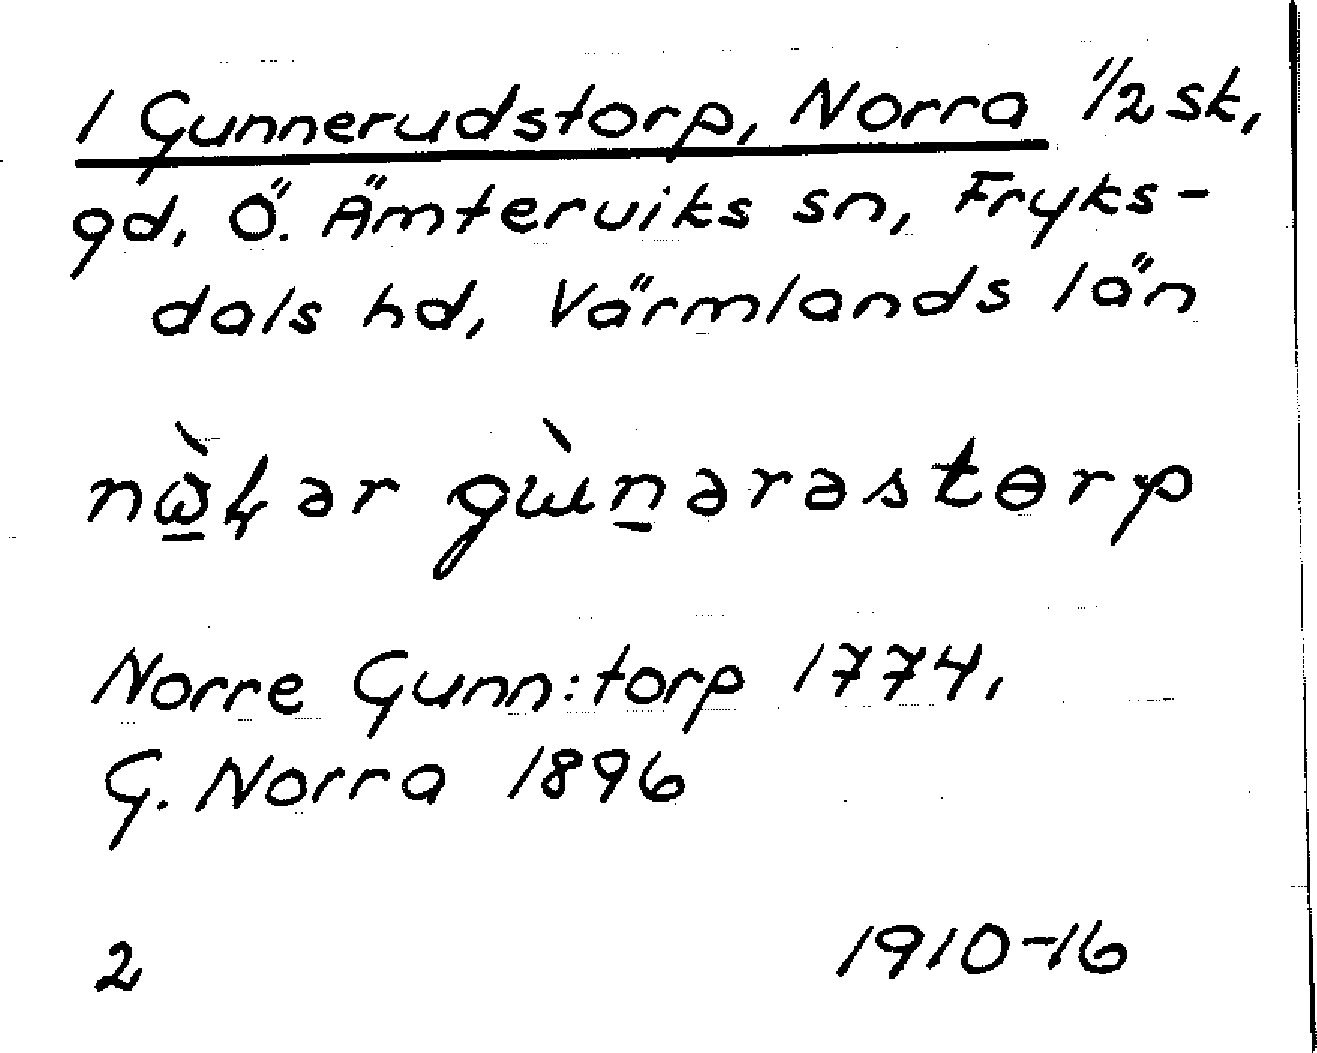 1 Gunnerudstorp, Norra 1/2 sk,
gd, Ö. Ämterviks sn, Fryks-
dals hd, Värmlands län
Norre Gunn:torp 1774,
G. Norra 1896
2 1910-16